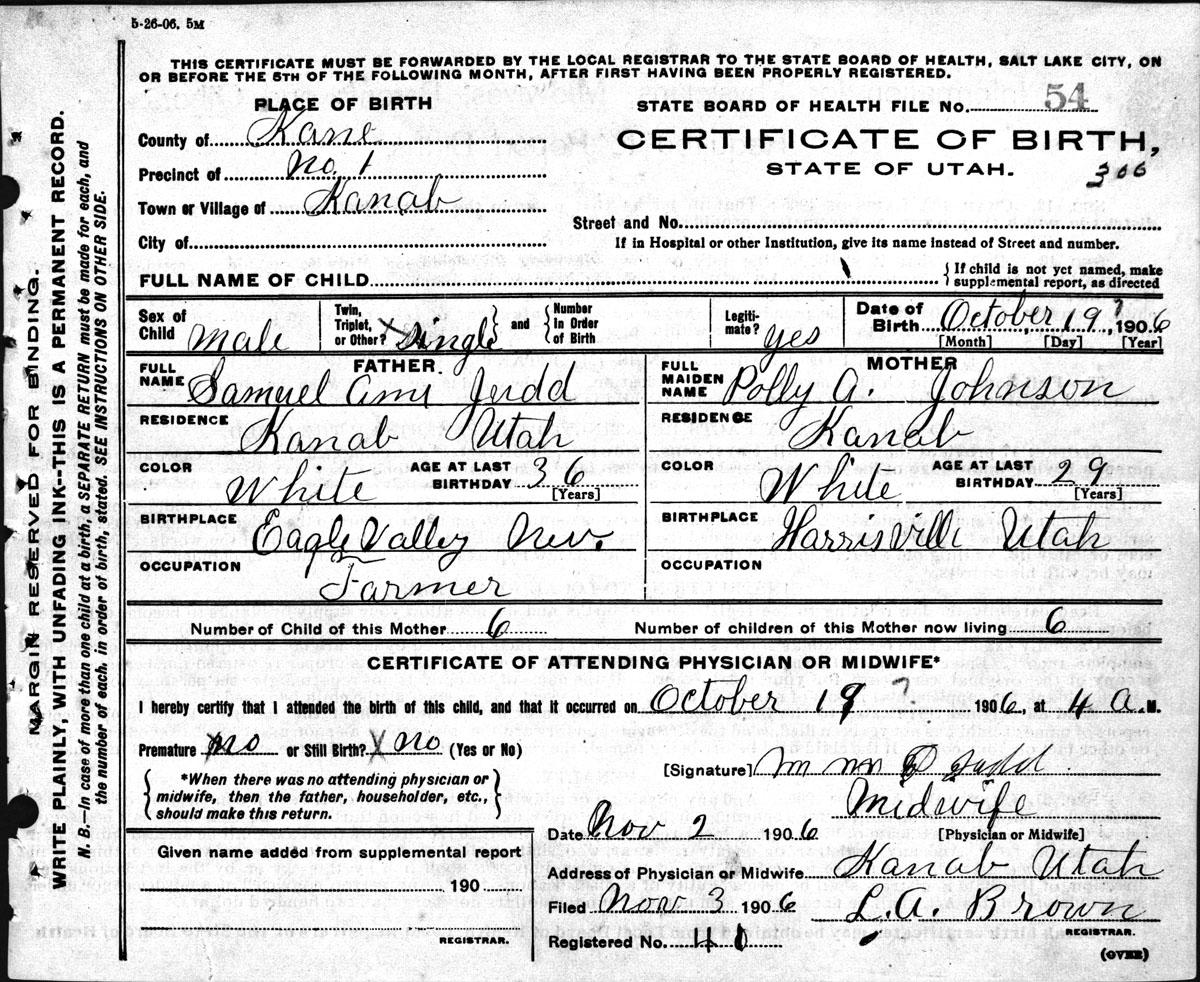 5-26-06. 5M
THIS CERTIFICATE MUST BE FORWARDED BY THE LOCAL REGISTRAR TO THE STATE BOARD OF HEALTH, SALT LAKE CITY, ON
OR BEFORE THE 5TH OF THE FOLLOWING MONTH, AFTER FIRST HAVING BEEN PROPERLY REGISTERED.
PLACE OF BIRTH
County of Kane
Precinct of No. 1
Town or Village of Kanab
City of
STATE BOARD OF HEALTH FILE No. 54
CERTIFICATE OF BIRTH,
STATE OF UTAH.
306
Street and No.
If in Hospital or other Institution, give its name instead of Street and number.
FULL NAME OF CHILD
{If child is not yet named, make
supplemental report, as directed
Sex of Child Male
Twin, Triplet, or Other? X Single and {Number In Order of Birth
Legitimate? Yes
Date of Birth October 19 ? 1906
[Month] [Day] [Year]
FATHER.
FULL NAME Samuel Ami Judd
RESIDENCE Kanab Utah
COLOR White AGE AT LAST BIRTHDAY 36 [Years]
BIRTHPLACE Eagle Valley Nev.
OCCUPATION Farmer
MOTHER
FULL MAIDEN NAME Polly A. Johnson
RESIDENCE Kanab
COLOR White AGE AT LAST BIRTHDAY 29 [Years]
BIRTHPLACE Harrisvill Utah
OCCUPATION
Number of Child of this Mother 6 Number of children of this Mother now living 6
CERTIFICATE OF ATTENDING PHYSICIAN OR MIDWIFE*
I hereby certify that I attended the birth of this child, and that it occurred on October 19 ? 1906, at 4 A. M.
Premature no or Still Birth? X no (Yes or No)
{*When there was no attending physician or
midwife, then the father, householder, etc.,
should make this return.}
[Signature] Judd
Midwife
[Physician or Midwife]
Date Nov 2 1906
Address of Physician or Midwife Kanab Utah
Filed Nov 3 1906 L.A. Brown
REGISTRAR.
Registered No.
(OVER)
Given name added from supplemental report
190
REGISTRAR.
MARGIN RESERVED FOR BINDING.
WRITE PLAINLY, WITH UNFADING INK--THIS IS A PERMANENT RECORD.
N. B.—In case of more than one child at a birth, a SEPARATE RETURN must be made for each, and
the number of each, in order of birth, stated. SEE INSTRUCTIONS ON OTHER SIDE.